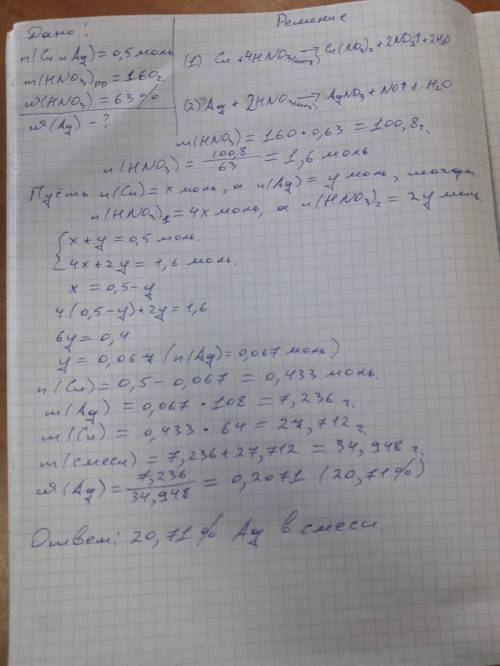 Дано:
Решение
n(Cu и Ag) = 0,5 моль
m(HNO₃)рр = 160г.
ω(HNO₃) = 63%
ω(Ag) - ?
(1) Cu + 4HNO₃(конц) → Cu(NO₃)₂ + 2NO₂↑ + 2H₂O
(2) Ag + 2HNO₃(конц) → AgNO₃ + NO↑ + H₂O
m(HNO₃) = 160 · 0,63 = 100,8г.
n(HNO₃) = 100,8/63 = 1,6 моль
Пусть n(Cu) = x моль, а n(Ag) = y моль, тогда
n(HNO₃)₁ = 4x моль, а n(HNO₃)₂ = 2y моль
{ x + y = 0,5 моль.
4x + 2y = 1,6 моль.
x = 0,5 - y
4(0,5 - y) + 2y = 1,6
6y = 0,4
y = 0,067 (n(Ag) = 0,067 моль)
n(Cu) = 0,5 - 0,067 = 0,433 моль.
m(Ag) = 0,067 · 108 = 7,236 г.
m(Cu) = 0,433 · 64 = 27,712 г.
m(смеси) = 7,236 + 27,712 = 34,948 г.
ω(Ag) = 7,236/34,948 = 0,2071 (20,71%)
Ответ: 20,71% Ag в смеси.